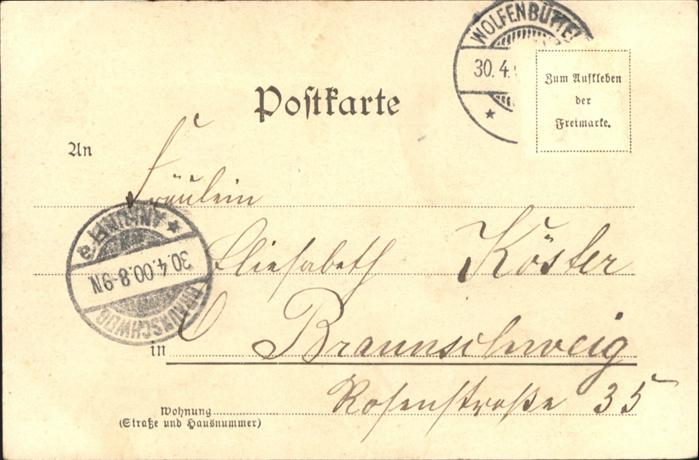 WOLFENBÜTTEL
30.4.
Zum Aufkleben
der
Freimarke.
Postkarte
An
Fräulein
Elisabeth Köster
ANKUNFT
30.4.00.8-9N
BRAUNSCHWEIG
in Braunschweig
Wohnung
(Straße und Hausnummer)
Rosenstraße 35